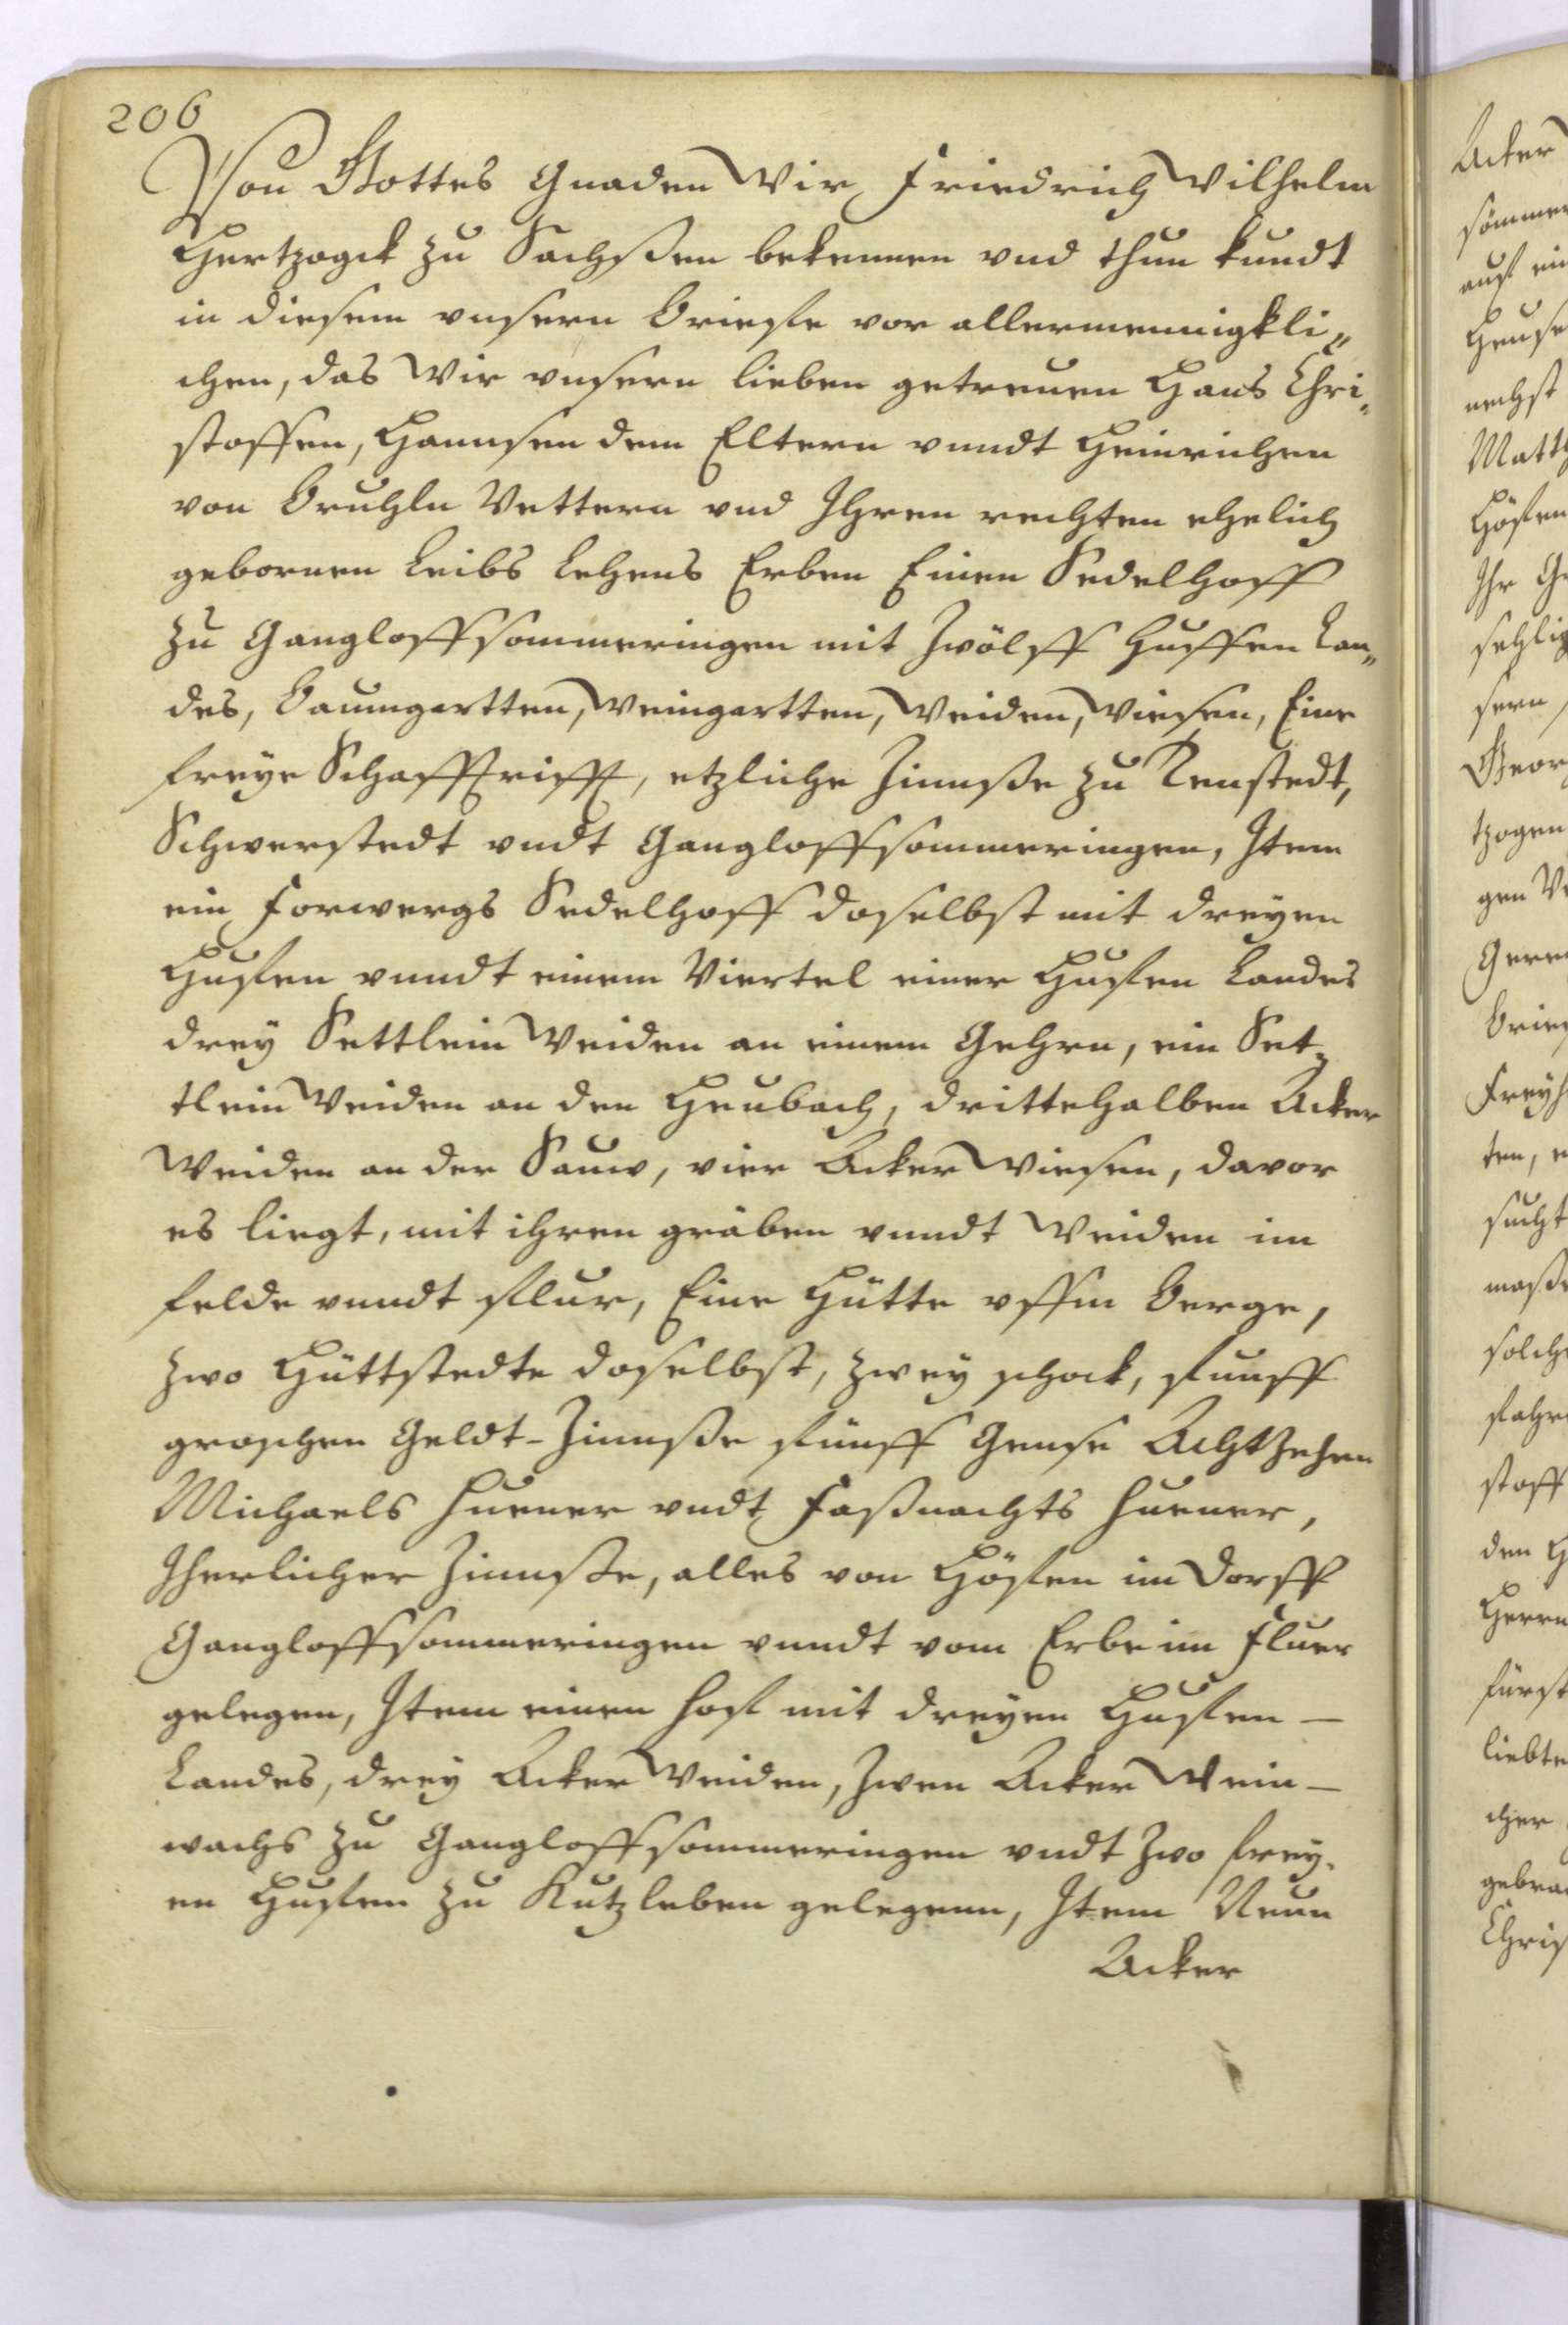 206
Von Gottes Gnaden Wir Friedrich Wilhelm
Hertzogk zu Sachßen bekennen vnd thun kundt
in diesem vnsern Briefe vor allermennigkli„
chen, das Wir vnsern lieben getreuen Hans Chri„
stoffen, Hannsen dem Eltern vnndt Heinrichen
von Bruhln Vettern vnd Ihren rechten ehelich
gebornen Leibs Lehens Erben Einen Sedelhoff
zu Gangloffsommeringen mit Zwölff Huffen Lan„
des, Baumgartten, Weingartten, Weiden, Wiesen, Eine
freye Schafftrifft, etzliche Zinnße zu Tenstedt,
Schwerstedt vndt Gangloffsommeringen, Item
ein Forwergs Sedelhoff doselbst mit dreyen
Hufen vnndt einem Viertel einer Hufen Landes
drey Settlein Weiden an einem Gehrn, ein Set-
tlein Weiden an den Heubach, drittehalben Acker
Weiden an der Sauw, vier Acker Wiesen, davor
es liegt, mit ihren gräben vnndt Weiden im
felde vnndt flur, Eine Hütte vffm Berge,
zwo Hüttstedte doselbst, zwey schock, funff
groschen Geldt-Zinnße fünff Gense Achtzehen
Michaels Huener vndt Faßnachts Huener,
Jherlicher Zinnße, alles von Höfen im Dorff
Gangloffsommeringen vnndt vom Erbe im Fluer
gelegen, Item einen Hof mit dreyen Hufen —
Landes, drey Acker Weiden, Zwen Acker Wein —
wachs zu Gangloffsommeringen vndt Zwo frey-
en Hufen zu Kutzleben gelegenn, Item Neun
Acker
Acker
sömmer
auf ein
Heuse
nechst
Matth
Höfen
Ihr Ge
sehlig
sern
Geor
tzogen
gen Ve
Geren
Brief
Freyh
ten, e
sucht
maße
solche
fahr
stoff
den H
Herrn
fürst
liebte
cher
gebra
Chris